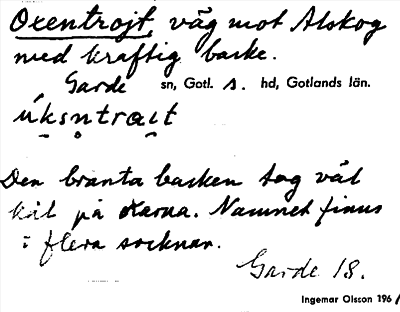 Oxentrojt, väg mot Alskog
med kraftig backe.
Garde sn, Gotl. s. hd, Gotlands län.
úksntrait
Den branta backen tog väl
kål på oxarna. Namnet finns
i flera socknar.
Garde 18.
Ingemar Olsson 196